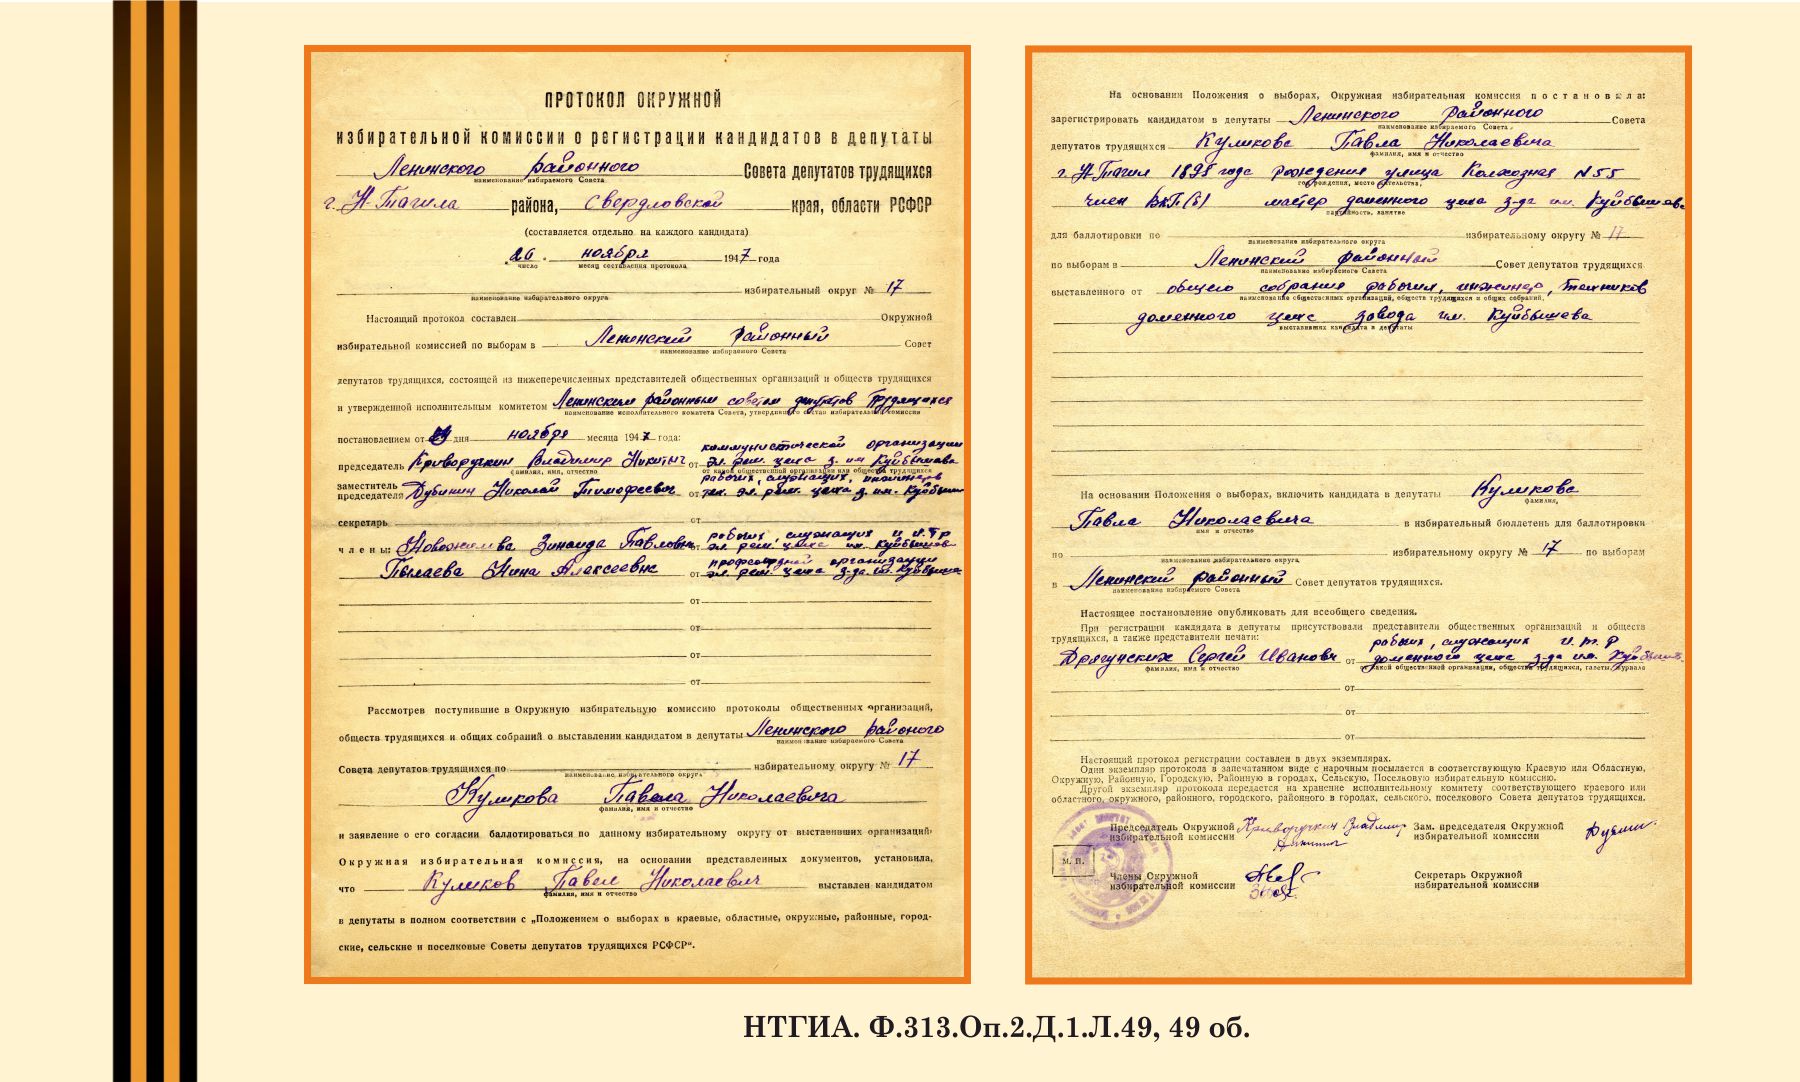 ПРОТОКОЛ ОКРУЖНОЙ
избирательной комиссии о регистрации кандидатов в депутаты
Ленинского районного Совета депутатов трудящихся
наименование избираемого Совета
г. Н-Тагила района, Свердловской края, области РСФСР
(составляется отдельно на каждого кандидата)
26 ноября 1947 года
число месяц составления протокола
избирательный округ № 17
наименование избирательного округа
Настоящий протокол составлен Окружной
избирательной комиссией по выборам в Ленинский районный Совет
наименование избираемого Совета
депутатов трудящихся, состоящей из нижеперечисленных представителей общественных организаций и обществ трудящихся
и утвержденной исполнительным комитетом Ленинским районным советом депутатов трудящихся
наименование исполнительного комитета Совета, утвердившего состав избирательной комиссии
постановлением от дня ноября месяца 1947 года:
коммунистической организации
председатель Криворучкин Владимир Никитич от эл. рем. цеха з. им Куйбышева
фамилия, имя, отчество от какой общественной организации или общества трудящихся
рабочих, служащих, инженеров
заместитель председателя Дубинин Николай Тимофеевич от тех. эл. рем. цеха з. им. Куйбыш
секретарь от
рабочих, служащих и и.т.р
члены: Зинаида Павловна от эл. рем. цеха им. Куйбышев
профсоюзной организации
Нина Алексеевна от эл. рем. цеха з-да им. Куйбышева
от
от
от
от
Рассмотрев поступившие в Окружную избирательную комиссию протоколы общественных организаций,
обществ трудящихся и общих собраний о выставлении кандидатом в депутаты Ленинского районого
наименование избираемого Совета
Совета депутатов трудящихся по избирательному округу № 17
наименование избирательного округа
Куликова Павела Николаевича
фамилия, имя и отчество
и заявление о его согласии баллотироваться по данному избирательному округу от выставивших организаций
Окружная избирательная комиссия, на основании представленных документов, установила,
что Куликов Павел Николаевич выставлен кандидатом
фамилия, имя и отчество
в депутаты в полном соответствии с „Положением о выборах в краевые, областные, окружные, районные, город-
ские, сельские и поселковые Советы депутатов трудящихся РСФСР".
На основании Положения о выборах, Окружная избирательная комиссия постановила:
зарегистрировать кандидатом в депутаты Ленинского районного Совета
наименование избираемого Совета
депутатов трудящихся Куликова Павла Николаевича
фамилия, имя и отчество
г. Н-Тагил 1898 года рождения улица Колхозная №55
год рождения, место жительства,
член ВКП(б) мастер доменного цеха з-да им. Куйбышева
партийность, занятие
для баллотировки по избирательному округу № 17
наименование избирательного округа
по выборам в Ленинский районный Совет депутатов трудящихся
наименование избираемого Совета
выставленного от общего собрания рабочих, инженер, техников
наименование общественных организаций, обществ трудящихся и общих собраний,
доменного цеха завода им. Куйбышева
выставивших кандидата в депутаты
На основании Положения о выборах, включить кандидата в депутаты Куликова
фамилия,
Павла Николаевича в избирательный бюллетень для баллотировки
имя и отчество
по избирательному округу № 17 по выборам
наименование избирательного округа
в Ленинский районный Совет депутатов трудящихся.
наименование избираемого Совета
Настоящее постановление опубликовать для всеобщего сведения.
При регистрации кандидата в депутаты присутствовали представители общественных организаций и обществ
трудящихся, а также представители печати:
рабочих, служащих и. т. р
Драгунских Сергей Иванович от доменного цеха з-да им. Куйбышева
фамилия, имя и отчество от какой общественной организации, общества трудящихся, газеты, журнала
от
от
от
Настоящий протокол регистрации составлен в двух экземплярах.
Один экземпляр протокола в запечатанном виде с нарочным посылается в соответствующую Краевую или Областную,
Окружную, Районную, Городскую, Районную в городах, Сельскую, Поселковую избирательную комиссию.
Другой экземпляр протокола передается на хранение исполнительному комитету соответствующего краевого или
областного, окружного, районного, городского, районного в городах, сельского, поселкового Совета депутатов трудящихся.
Председатель Окружной избирательной комиссии Криворучкин Владимир Никитич
Зам. председателя Окружной избирательной комиссии
М. П.
Члены Окружной избирательной комиссии
Секретарь Окружной избирательной комиссии
НТГИА. Ф.313.Оп.2.Д.1.Л.49, 49 об.